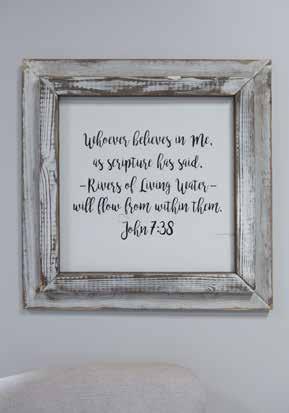 Whoever believes in Me,
as scripture has said.
-Rivers of Living Water-
will flow from within them.
John 7:38